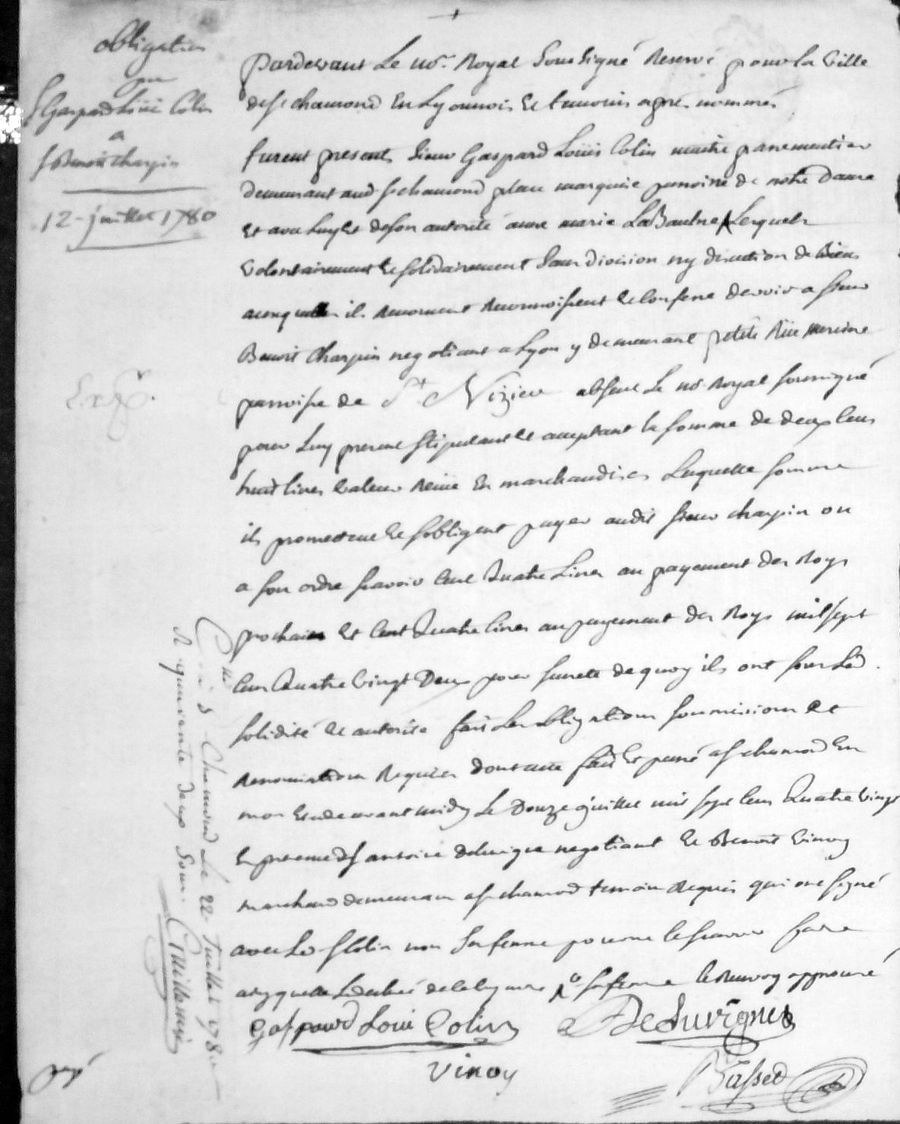 obligation
par
Sr Gaspard Loüis Colin
a
Sr Benoit Charpin
12 juillet 1780
pardevant Le nore Royal Soussigné Reservé pour la Ville
de st chamond En Lyonnois Et temoins apres nommés
furent presents Sieur Gaspard Loüis Colin maitre passementier
demeurant aud st chamond place marquise paroisse de notre Dame
Et avec Luy Et de son autorité anne marie LaBaulne Lesquels
volontairement Et solidairement Sans division ny discution de Biens
auxquelles ils Renoncent Reconnoissent Et Confessent devoir a sieur
Benoit Charpin negotiant a Lyon y demeurant petite Rüe merciere
parroisse de St Nizier absent Le nore Royal soussigné
pour Luy present stipulant Et acceptant la somme de deux Cens
huit livres valeur Reüe En marchandises Laquelle somme
ils promettent Et sobligent payer audit sieur charpin ou
a son ordre scavoir Cent Quatre Livres au payement des Roys
prochain Et Cent Quatre livres au payement des Roys mil sept
Cens Quatre vingt Deux pour surete de quoy ils ont sous Lad.
solidité Et autorité fait Les obligations soumissions Et
Renonciations Requises dont acte fait Et passé a st chamond En
mon Etude avant midy Le Douze juillet mil sept Cens Quatre vingt
En presence de sr antoine desuvigne negotiant Et Benoit Vinoy
marchand demeurans a st chamond temoins Requis qui ont signé
avec Led sr Colin non Sa femme pour ne le scavoir faire
ainsy quelle La declaré de ce Enquise
sa femme le Renvoy approuvé
Gaspard Loui Colin
a Desuvignes
Vinoy
Basset
Cllé à St Chamond Le 22 Juillet 1780
R. quarante deux sous.
payé